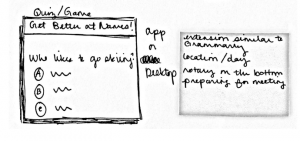 Quiz/Game
Get Better at Names!
Who likes to go skiing?
A
B
C
app
or
Desktop
extension similar to
Grammarly
location/day
notary on the bottom
preparing for meeting